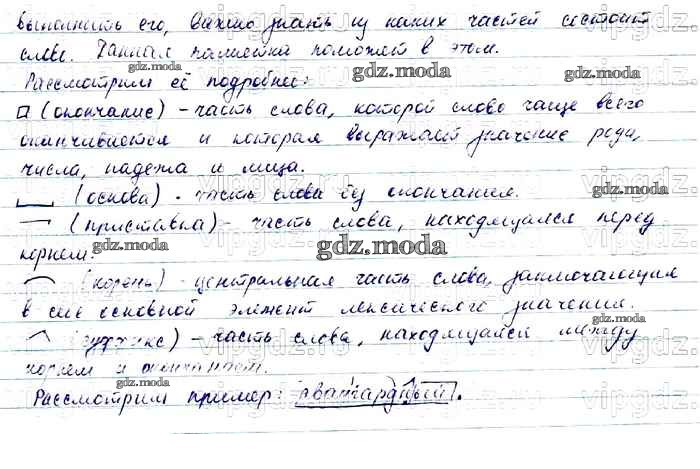 выполнить его, важно знать из каких частей состоит
слово. Данная памятка поможет в этом.
Рассмотрим её подробнее:
(окончание) - часть слова, которой слово чаще всего
оканчивается и которая выражает значение рода,
числа, падежа и лица.
(основа) - часть слова без окончания.
(приставка) - часть слова, находящаяся перед
корнем.
(корень) - центральная часть слова, заключающая
в себе основной элемент лексического значения.
(суффикс) - часть слова, находящаяся между
корнем и окончанием.
Рассмотрим пример: авангардный.
gdz.moda
vipgdz.ru